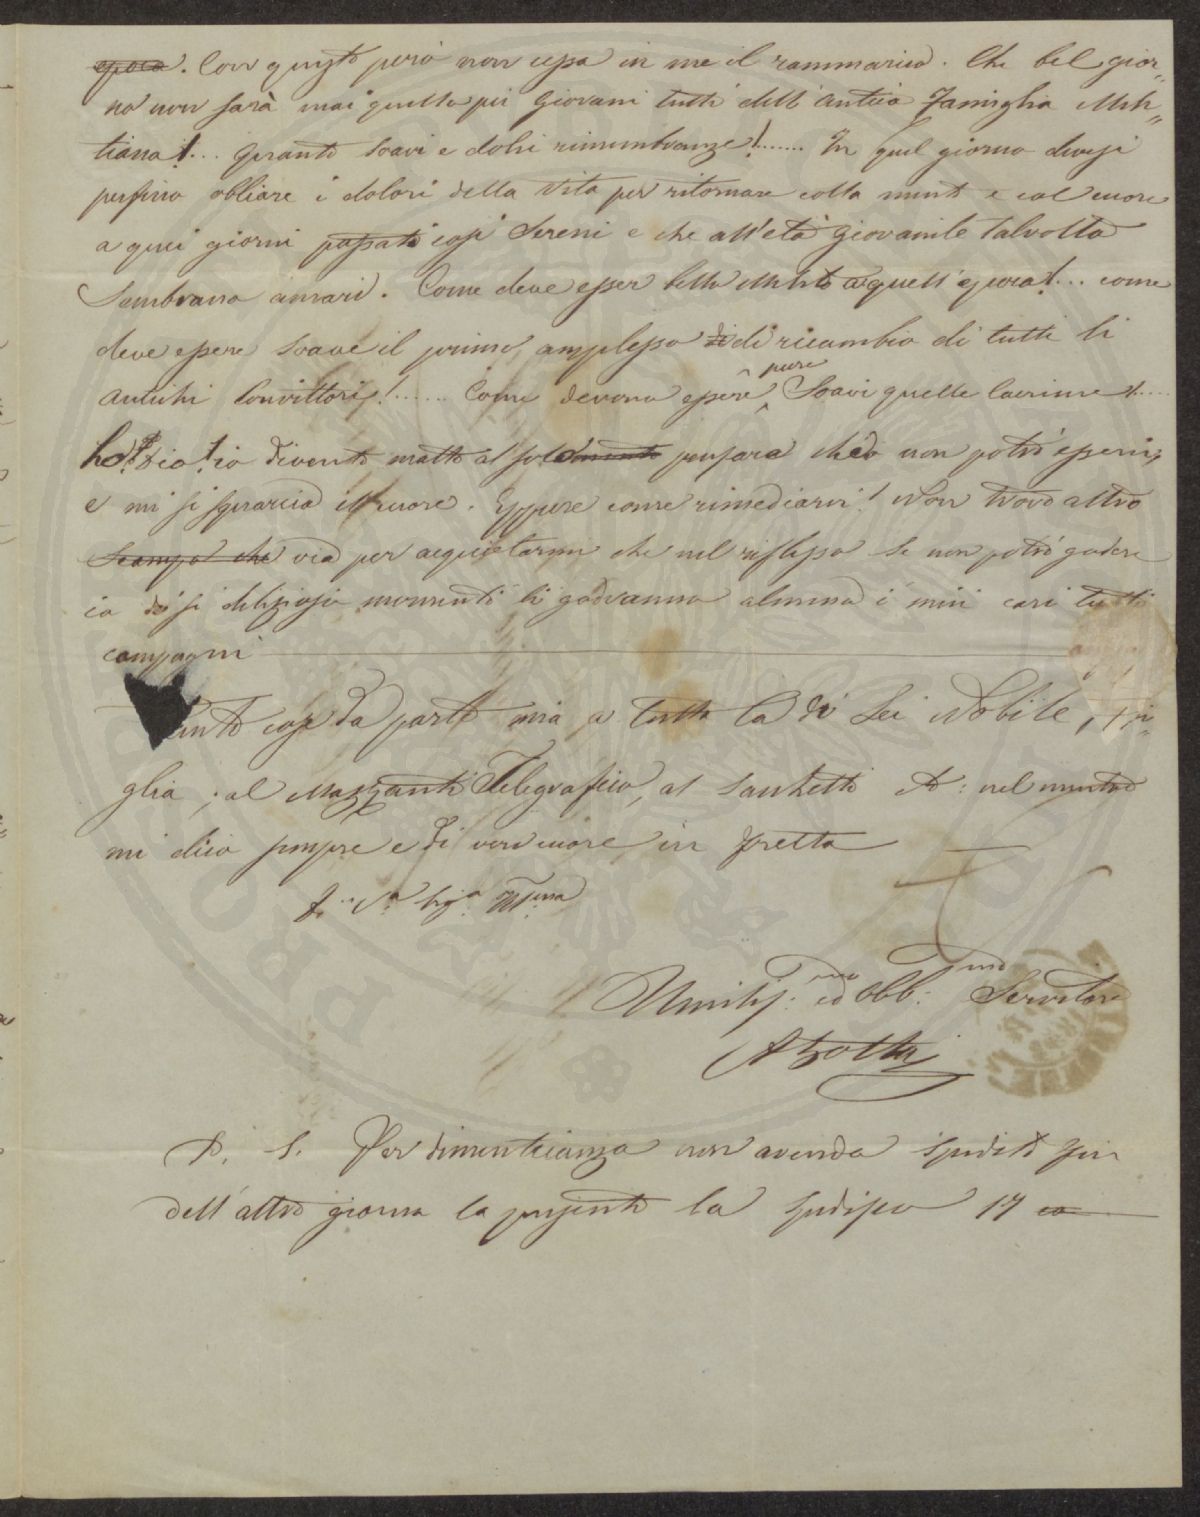 epoca. Con questo però non cessa in me il rammarico. Che bel gior-
no non sarà mai quello pei Giovani tutti dell'antica Famiglia Meli-
tiana!... Quanto soavi e dolci rimembranze!....... In quel giorno devesi
perfino obliare i dolori della vita per ritornare colla mente e col cuore
a quei giorni passati così sereni e che all'età giovanile talvolta
sembrano amari. Come deve esser bello a quell'epoca!... come
deve essere soave il primo amplesso di ricambio di tutti li
antichi Convittori!...... Come devono essere pure soavi quelle lacrime!.....
ho! Dio! io divento matto al solo pensare che io non potrò esservi,
e mi si squarcia il cuore. Eppure come rimediarvi! Non trovo altro
scampo che via per acquietarmi che nel riflesso se non potrò godere
io di sì deliziosi momenti li godranno almeno i miei cari tutti
compagni
cose da parte mia a tutta la di Lei Nobile Fami-
glia, al Mazzanti Telegrafico, al Sanchetti &: nel mentre
mi dico sempre e di vero cuore in fretta
Umiliss: mo ed Obb: mo Servitore
P. S. Per dimenticanza non avendo spedito fin
dell'altro giorno la presente la spedisco 17